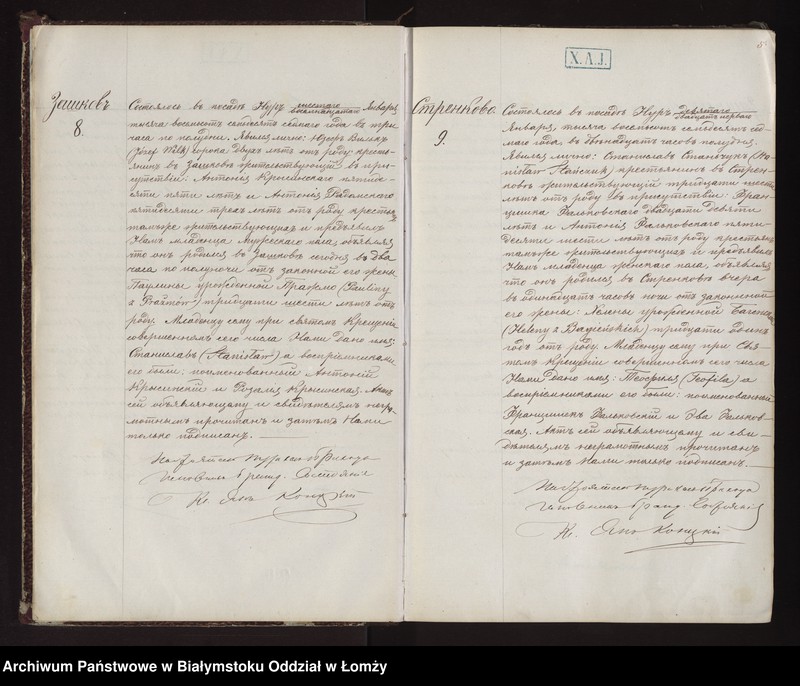 Зашковъ
8.
Состоялось въ посадѣ Нуръ шестаго Января
восемнадцатаго
тысяча восемьсотъ семьдесятъ седмаго года въ три
часа по полудни. Явился лично: Юзефъ Вилкъ
(Józef Wilk) сорока двухъ лѣтъ отъ роду кресть-
янинъ въ Зашковѣ жительствующій въ при-
сутствіи: Антонія Крысинскаго пятьде-
сяти пяти лѣтъ и Антонія
пятидесяти трехъ лѣтъ отъ роду крестьянъ
тамъже жительствующихъ и предъявилъ
Намъ младенца мужескаго пола объявляя
что онъ родился въ Зашковѣ сегодня въ два
часа по полуночи отъ законной его жены
Паулины урожденной (Pauliny
z) тридцати шести лѣтъ отъ
роду. Младенцу сему при святомъ крещеніи
совершенномъ сего числа Нами дано имя:
Станиславъ (Stanisław) а воспріемниками
его были: поименованный Антоній
Крысинскій и Розалія Крысинская. Актъ
сей объявляющему и свидѣтелямъ негра-
мотнымъ прочитанъ и затѣмъ Нами
только подписанъ.
Кс. Янъ Коницкій
X.A.J.
Стренково
9.
Состоялось въ посадѣ Нуръ девятаго
двадцать перваго
Января, тысяча восемьсотъ семьдесятъ сед-
маго года въ двѣнадцать часовъ полудня.
Явился лично: Станиславъ (Sta-
nisław) крестьянинъ въ Стрен-
ковѣ жительствующій тридцати шести
лѣтъ отъ роду въ присутствіи: Фран-
цишка Фалковскаго двадцати девяти
лѣтъ и Антонія Фалковскаго пяти-
десяти шести лѣтъ отъ роду крестьянъ
тамъже жительствующихъ и предъявилъ
Намъ младенца женскаго пола, объявляя
что онъ родился въ Стренковѣ вчера
въ одинадцать часовъ ночи отъ законной
его жены: Гелены урожденной
(Heleny z) тридцати одинъ
годъ отъ роду. Младенцу сему при свя-
томъ крещеніи совершенномъ сего числа
Нами дано имя: Теофиля (Teofila) а
воспріемниками его были: поименованный
Францишекъ Фалковскій и Эва Фалков-
ская. Актъ сей объявляющему и сви-
дѣтелямъ неграмотнымъ прочитанъ
и затѣмъ Нами только подписанъ.
Кс. Янъ Коницкій
Archiwum Państwowe w Białymstoku Oddział w Łomży